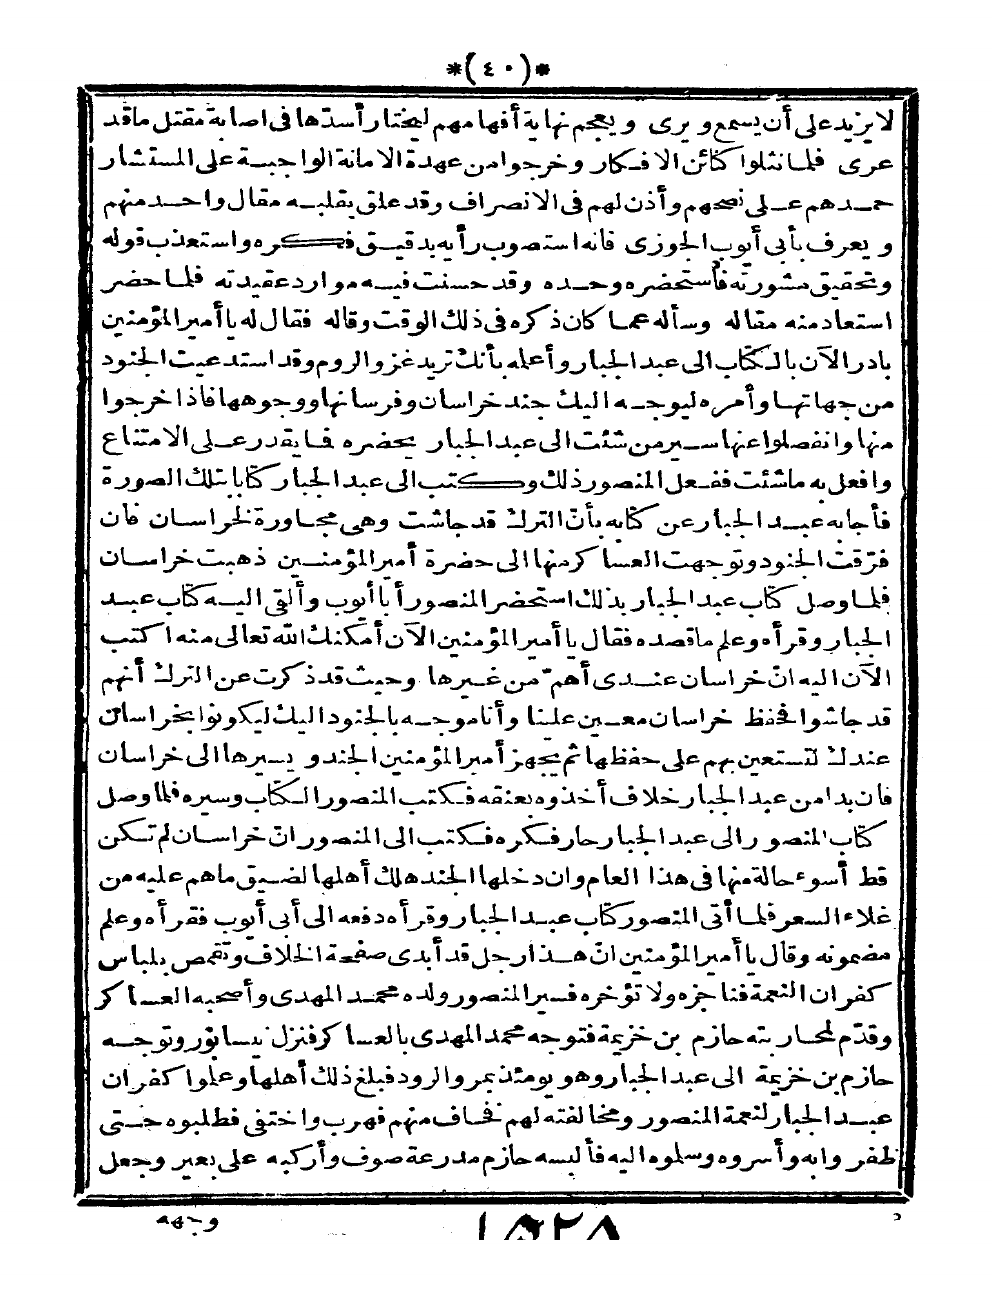 *(٤٠)*
لا يزيد على أن يسمع ويرى ويعجم نهاية أفهامهم ليختار أسدّها فى اصابة مقتل ماقد
عرى فلما نثلوا كنائن الافكار وخرجوا من عهدة الامانة الواجبة على المستشار
حمدهم على نصحهم وأذن لهم فى الانصراف وقد علق بقلبه مقال واحد منهم
ويعرف بأبى أيوب الجوزى فانه استصوب رأيه بدقيق فكره واستعذب قوله
وتحقيق مشورته فأستحضره وحده وقد حسنت فيه موارد عقيدته فلما حضر
استعاد منه مقاله وسأله عما كان ذكره فى ذلك الوقت وقاله فقال له يا أمير المؤمنين
بادر الآن بالكتاب الى عبد الجبار وأعله بأنك تريد غزو الروم وقد استدعيت الجنود
من جهاتها وأمره ليوجه اليك جند خراسان وفرسانها ووجوهها فاذا خرجوا
منها وانفصلوا عنها سير من شئت الى عبد الجبار يحضره فما يقدر على الامتناع
وافعل به ماشئت ففعل المنصور ذلك وكتب الى عبد الجبار كتابا بتلك الصورة
فأجابه عبد الجبار عن كتابه بأنّ الترك قد جاشت وهى مجاورة لخراسان فان
فرّقت الجنود وتوجهت العساكر منها الى حضرة أمير المؤمنين ذهبت خراسان
فلما وصل كتاب عبد الجبار بذلك استحضر المنصور أبا أيوب وألقى اليه كتاب عبد
الجبار وقرأه وعلم ماقصده فقال يا أمير المؤمنين الآن أمكنك الله تعالى منه اكتب
الآن اليه انّ خراسان عندى أهمّ من غيرها وحيث قد ذكرت عن الترك أنهم
قد جاشوا فحفظ خراسان معين علينا وأنا موجه بالجنود اليك ليكونوا بخراسان
عندك لتستعين بهم على حفظها ثم يجهز أمير المؤمنين الجند ويسيرها الى خراسان
فان بدا من عبد الجبار خلاف أخذوه بعنقه فكتب المنصور الكتاب وسيره فلما وصل
كتاب المنصور الى عبد الجبار حار فكره فكتب الى المنصور انّ خراسان لم تكن
قط أسوء حالة منها فى هذا العام وان دخلها الجند هلك أهلها لضيق ماهم عليه من
غلاء السعر فلما أتى المنصور كتاب عبد الجبار وقرأه دفعه الى أبى أيوب فقرأه وعلم
مضمونه وقال يا أمير المؤمنين انّ هذا رجل قد أبدى صفحة الخلاف وتقمص بلباس
كفران النعمة فناجزه ولا تؤخره فسير المنصور ولده محمد المهدى وأصحبه العساكر
وقدّم لمحاربته حازم بن خزيمة فتوجه محمد المهدى بالعساكر فنزل نيسابور وتوجه
حازم بن خزيمة الى عبد الجبار وهو يومئذ بمرو الرود فبلغ ذلك أهلها وعلموا كفران
عبد الجبار لنعمة المنصور ومخالفته لهم فخاف منهم فهرب واختفى فطلبوه حتى
ظفروا به وأسروه وسلموه اليه فألبسه حازم مدرعة صوف وأركبه على بعير وجعل
وجهه
١٥٢٨